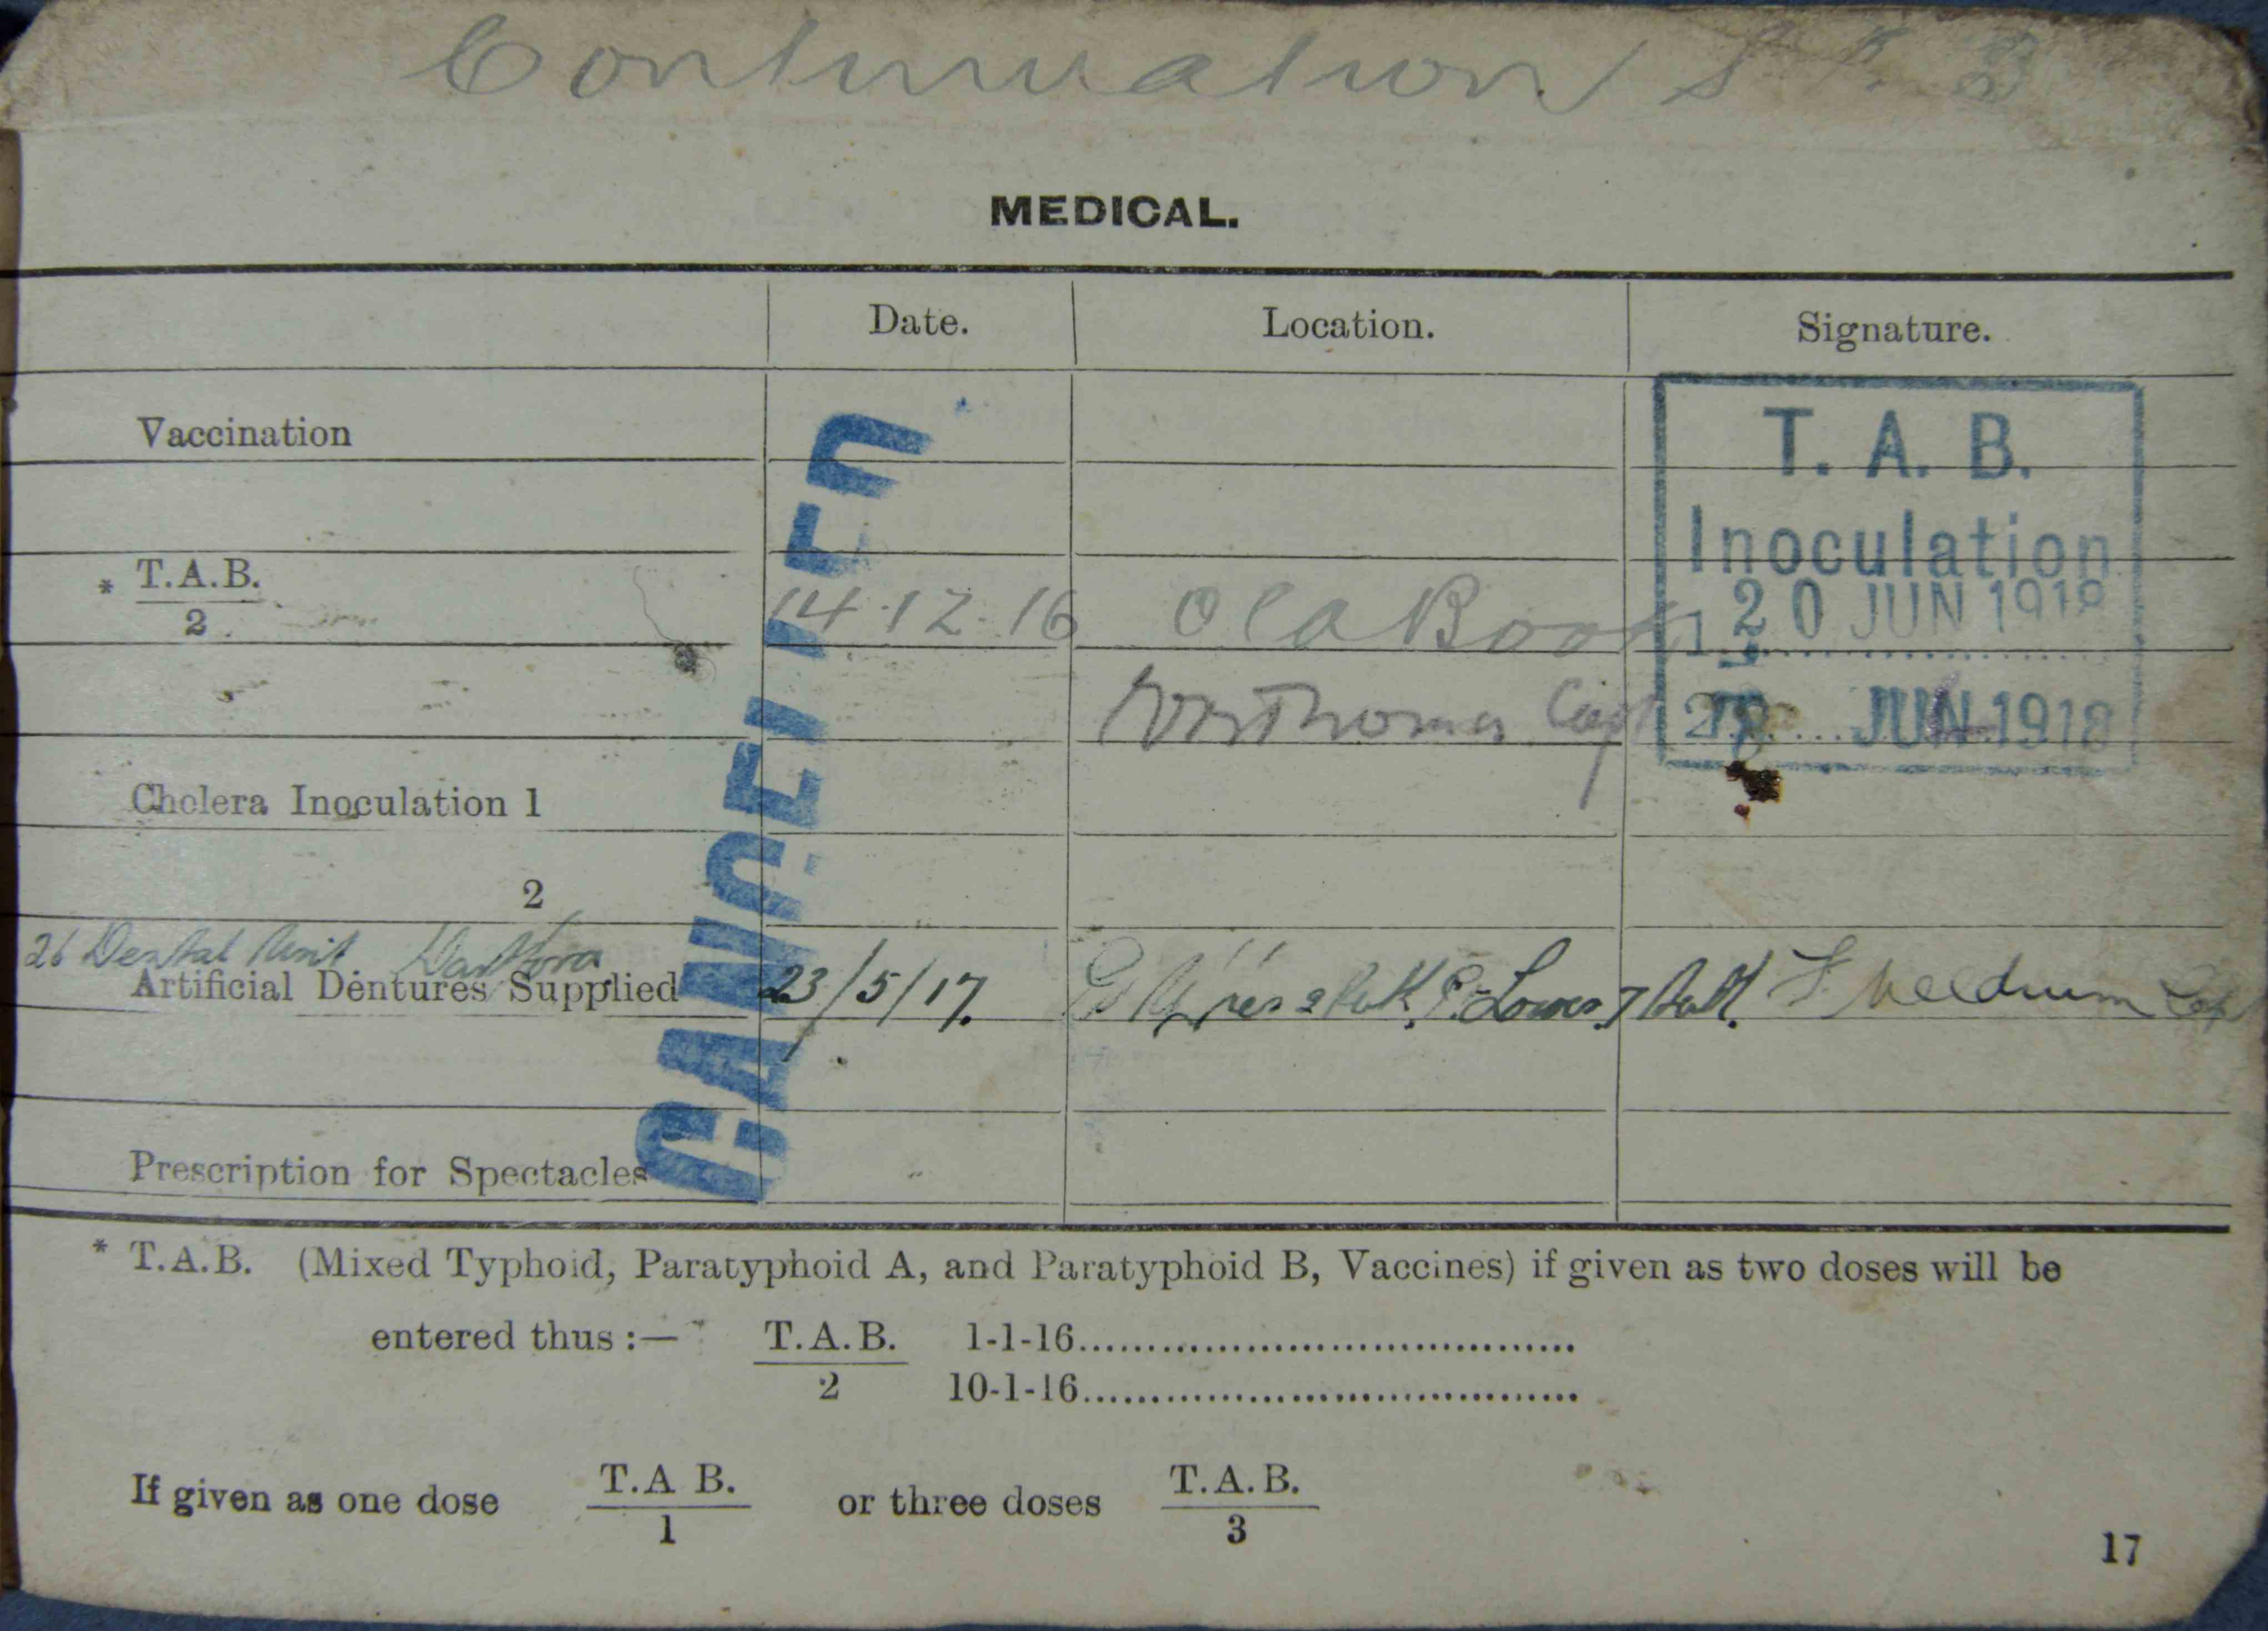 Continuation
MEDICAL.
Date. Location. Signature.
Vaccination
T. A. B.
Inoculation
* T.A.B. 14.12.16 1 20 JUN 1918
2
Capt 2 JUN 1918
Cholera Inoculation 1
2
26 Dental Unit
Artificial Dentures Supplied 23/5/17. Lower 7
Prescription for Spectacles
CANCELLED
* T.A.B. (Mixed Typhoid, Paratyphoid A, and Paratyphoid B, Vaccines) if given as two doses will be
entered thus :— T.A.B. 1-1-16
2 10-1-16
If given as one dose T.A B. or three doses T.A.B.
1 3
17